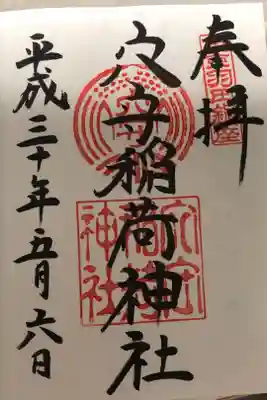 奉拝
穴守稲荷神社
平成三十年五月六日
穴守
稲荷
神社